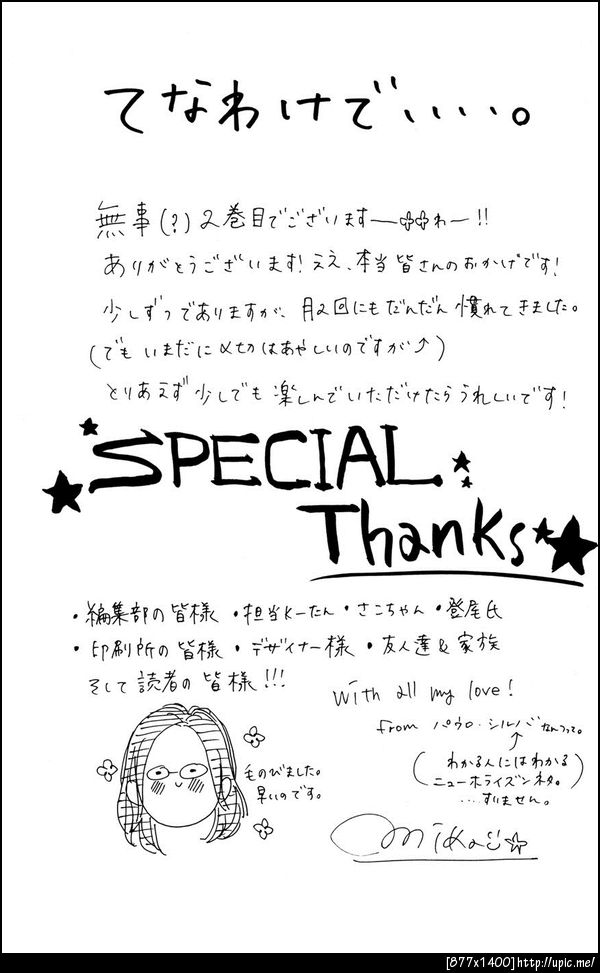 てなわけで、、、、。
無事(?)2巻目でございますーわー!!
ありがとうございます!ええ、本当皆さんのおかげです!
少しずつでありますが、月2回にもだんだん慣れてきました。
(でもいまだに〆切はあやしいのですが↑)
とりあえず少しでも楽しんでいただけたらうれしいです!
SPECIAL
Thanks
・編集部の皆様 ・担当Kーたん ・さこちゃん ・登尾氏
・印刷所の皆様 ・デザイナー様 ・友人達&家族
そして読者の皆様!!!
With all my love!
from パウロ・シルバ なんつって。
↑
(わかる人にはわかる
ニューホライズンネタ。)
....すいません。
毛のびました。
早いのです。
[877x1400]http://upic.me/